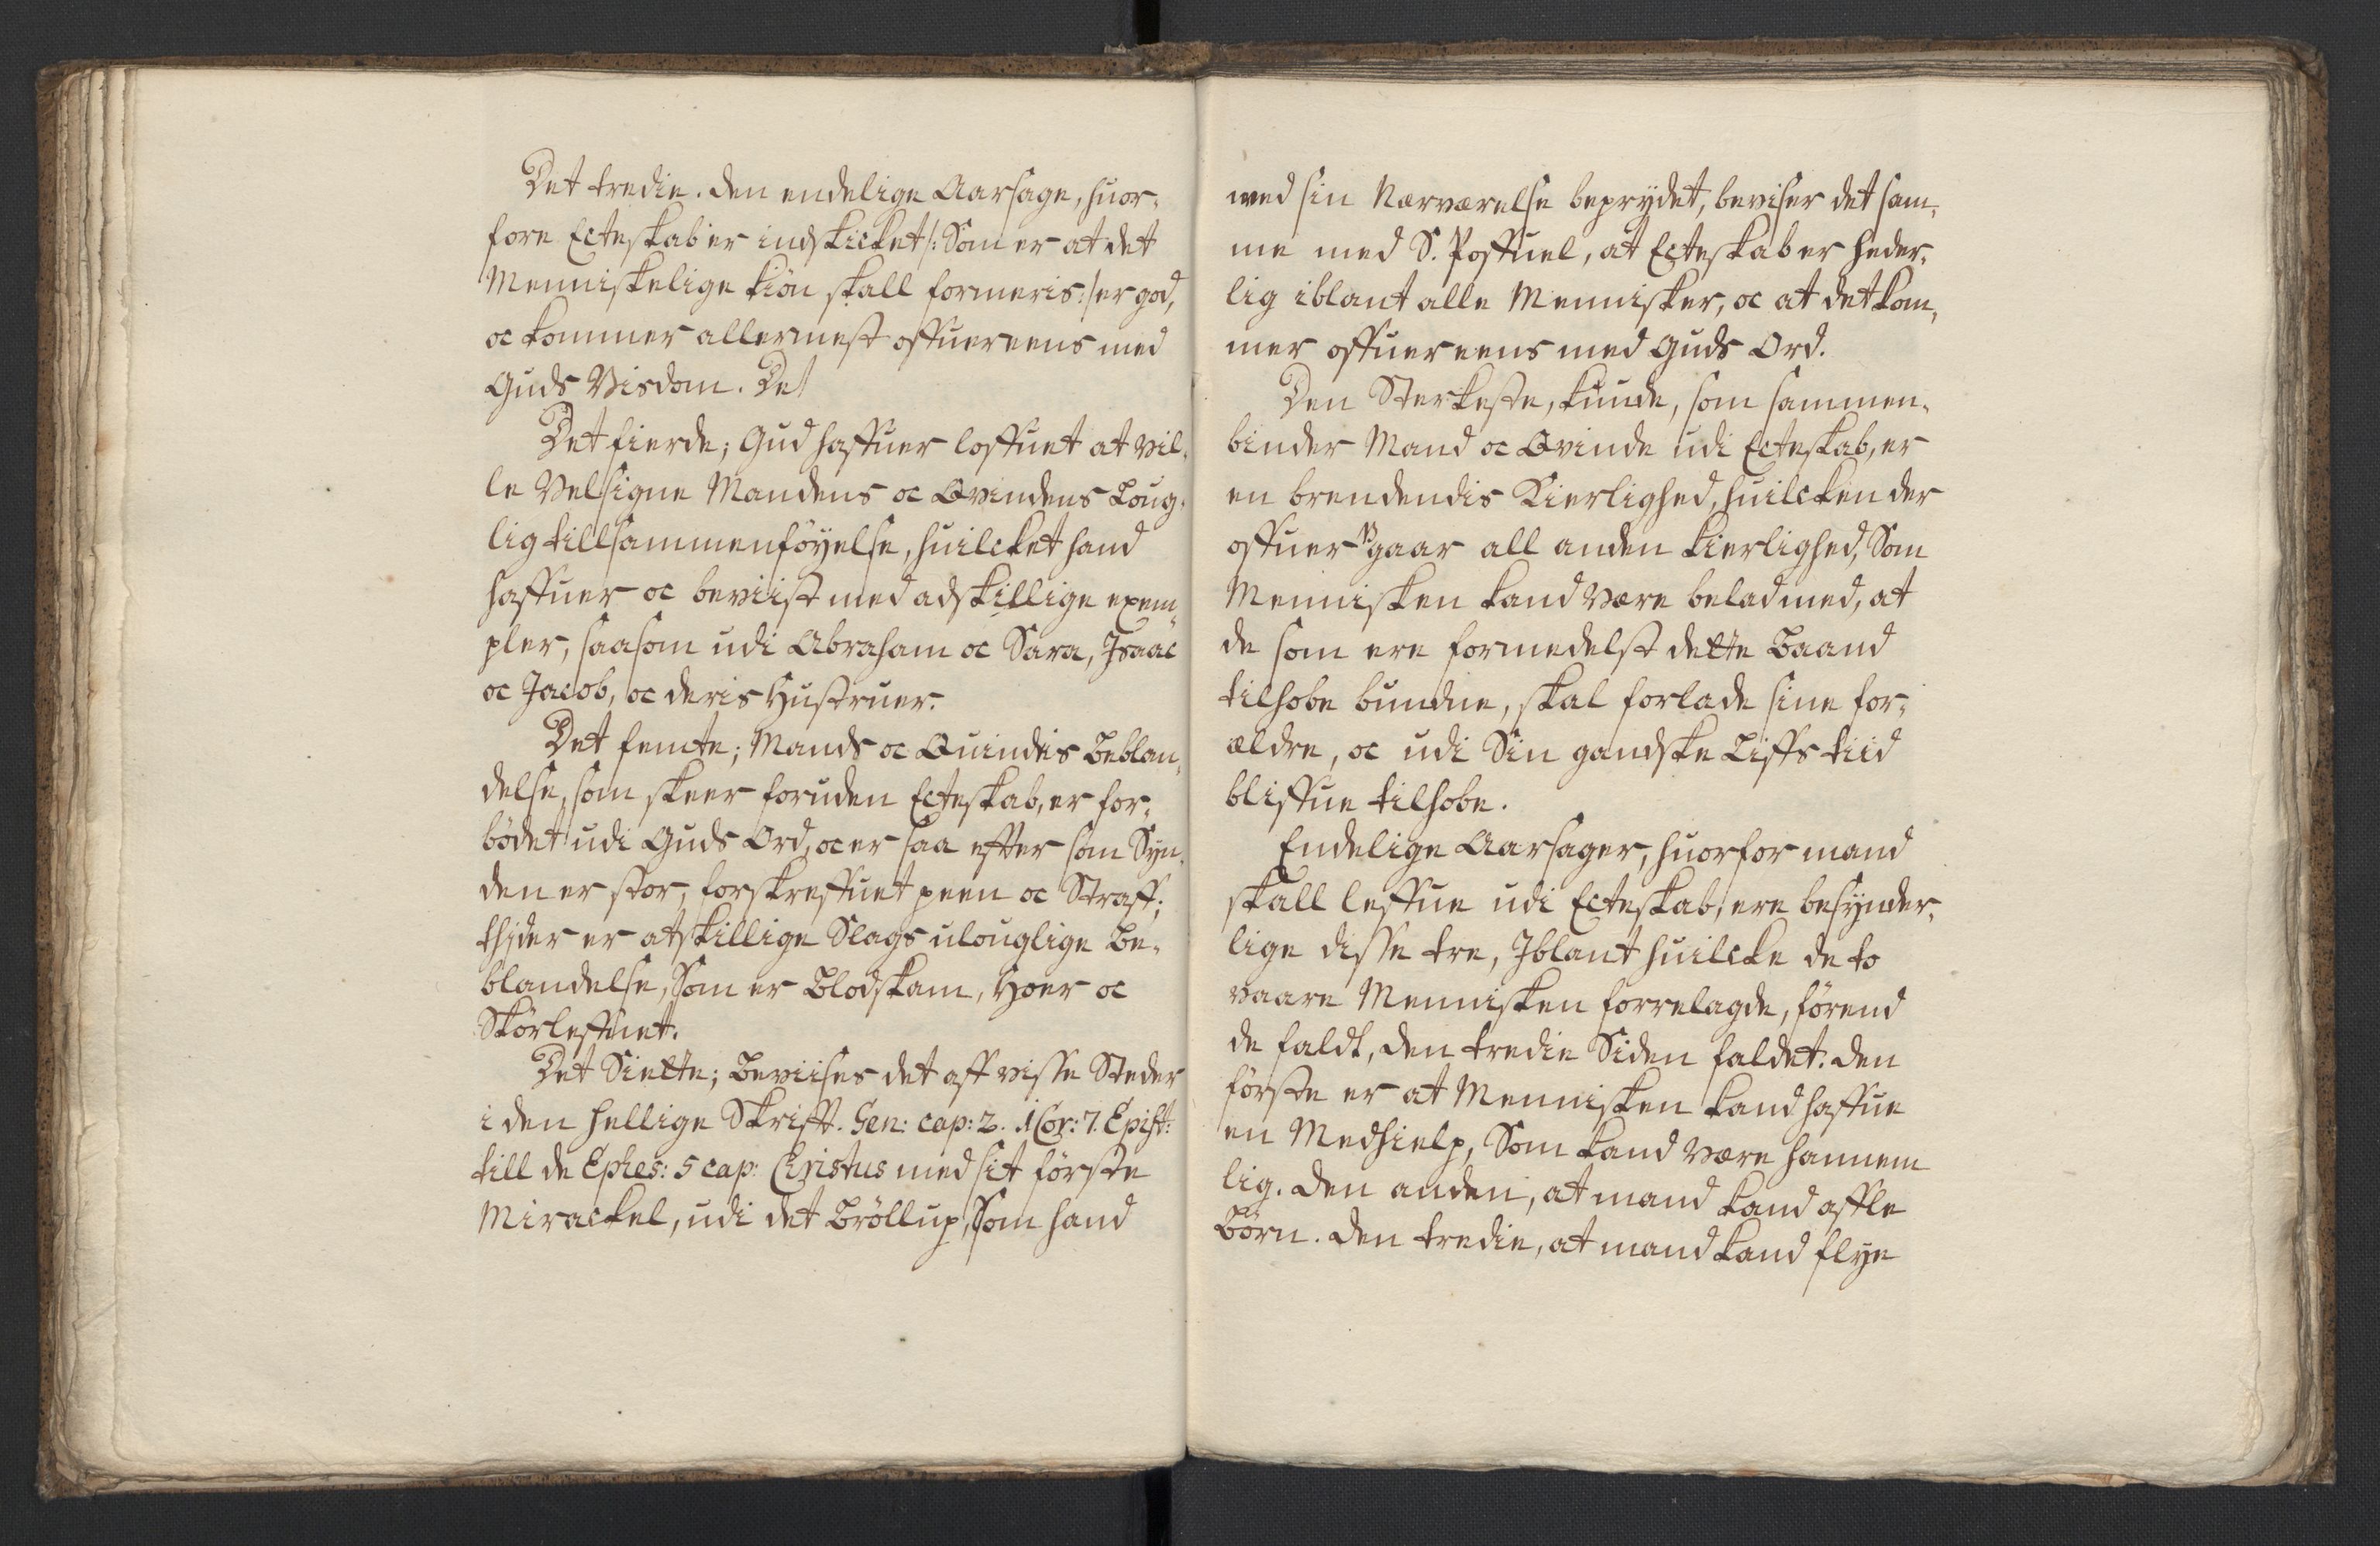 Det tredie. den endelige Aarsage, huor-
fore Ecteskab er indskicket /: Som er at det
Menniskelige kiön skall formeris :/ er god,
oc kommer allermest offuereens med
Guds Visdom. Det
Det fierde; Gud haffuer loffuet at vil-
le Velsigne Mandens oc Qvindens Loug-
lig tillsammenföyelse, huilcket hand
haffuer oc beviist med adskillige exem-
pler, saasom udi Abraham oc Sara, Isaac
oc Jacob, oc deris Hustruer.
Det femte; Mands oc Quindis beblan-
delse, som skeer foruden Ecteskab, er for-
bödet udi Guds Ord, oc er saa effter som Syn-
den er stor, forskreffuet peen oc Straff;
thj der er atskillige Slags ulouglige Be-
blandelse, Som er Blodskam, Hoer oc
Skörleffnet.
Det Siette; Beviises det aff visse Steder
i den hellige Skrifft. Gen: cap: 2. 1 Cor: 7. Epist:
till de Ephes: 5 cap: Christus med sit förste
Mirackel, udi det Bröllup, Som hand
med sin Nærværelse beprydet, beviser det sam-
me med S. Poffuel, at Ecteskab er heder-
lig iblant alle Mennisker, oc at det kom-
mer offuereens med Guds Ord.
Den Sterkeste, kunde, som sammen-
binder Mand oc Qvinde udi Ecteskab, er
en brendendis Kierlighed, huilcken der
offuer gaar all anden kierlighed, Som
Mennisken kand være belad med, at
de som ere formedelst dette Baand
tilhobe bundne, skal forlade sine for-
ældre, oc udi Sin gandske Liffs tiid
bliffue tilhobe.
Endelige Aarsager, huorfor mand
skall leffue udi Ecteskab, ere besynder-
lige disse tre, Iblant huilcke de to
vaare Mennisken forrelagde, förend
de faldt, den tredie Siden faldet. den
förste er at Mennisken kand haffue
en Medhielp, Som kand være hannem
lig. den anden, at mand kand affle
Börn. den tredie, at mand kand flye